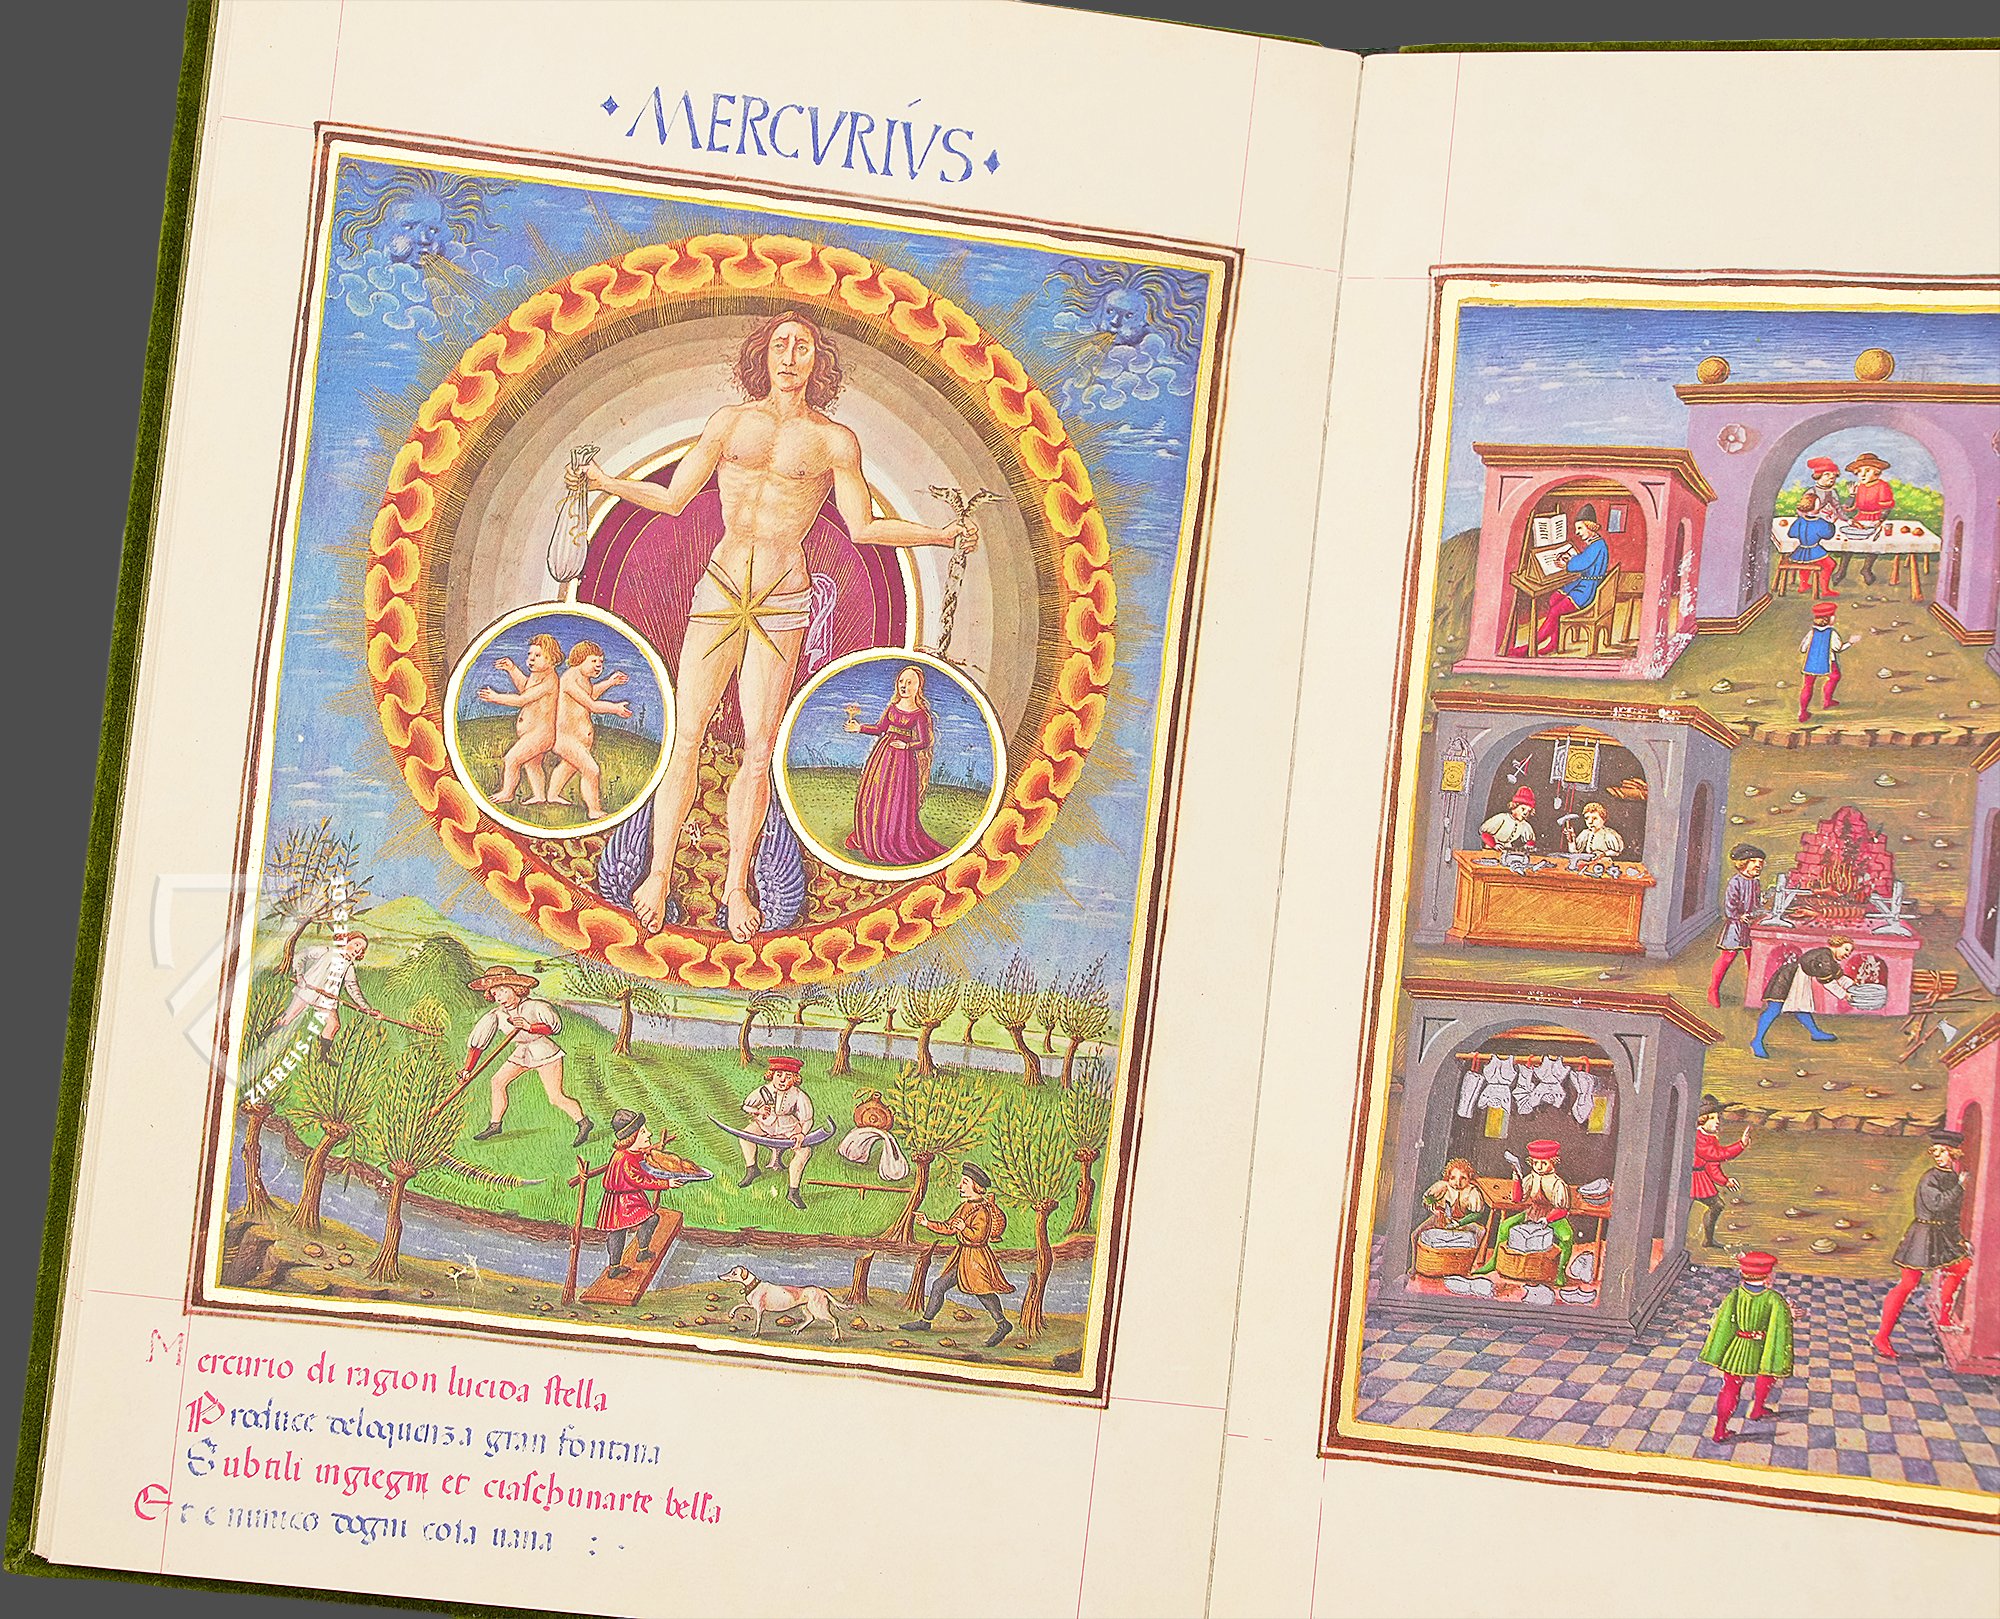 · MERCVRIVS ·
Mercurio di ragion lucida stella
Produce deloquenza gran fontana
Subtili ingiegni et ciaschunarte bella
Et e nimico dogni cosa uana : ·
ZIEREIS-FAKSIMILES.DE